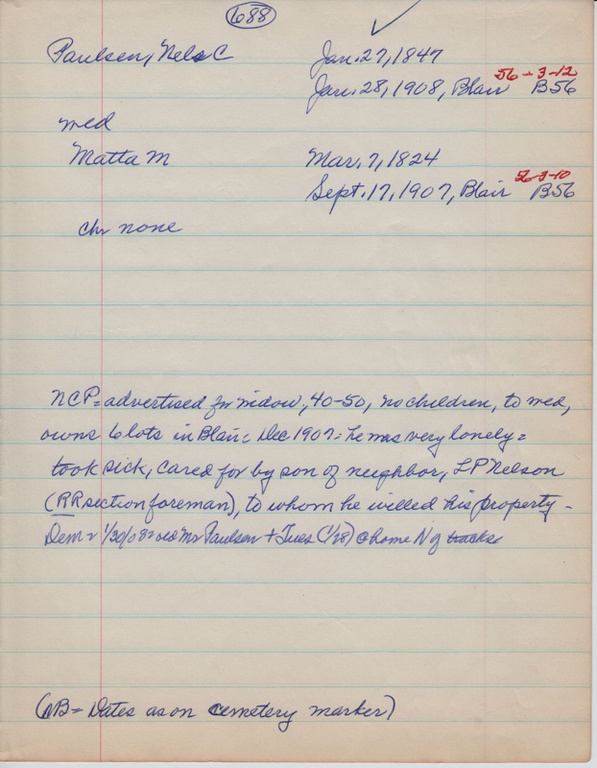 688
Paulsen, Nels C Jan. 27, 1847
56-3-12
Jan. 28, 1908, Blair B56
wed
Matta M Mar. 7, 1824
56-3-10
Sept. 17, 1907, Blair B56
chr none
NCP = advertised for widow, 40-50, no children, to wed,
owns 6 lots in Blair = Dec 1907 = he was very lonely =
took sick, cared for by son of neighbor, LP Nelson
(RR section foreman), to whom he willed his property -
Dem = 1/30/08 = old Mr Paulsen + Tues (1/28) @ home N of tracks
(NB = Dates as on cemetery marker)